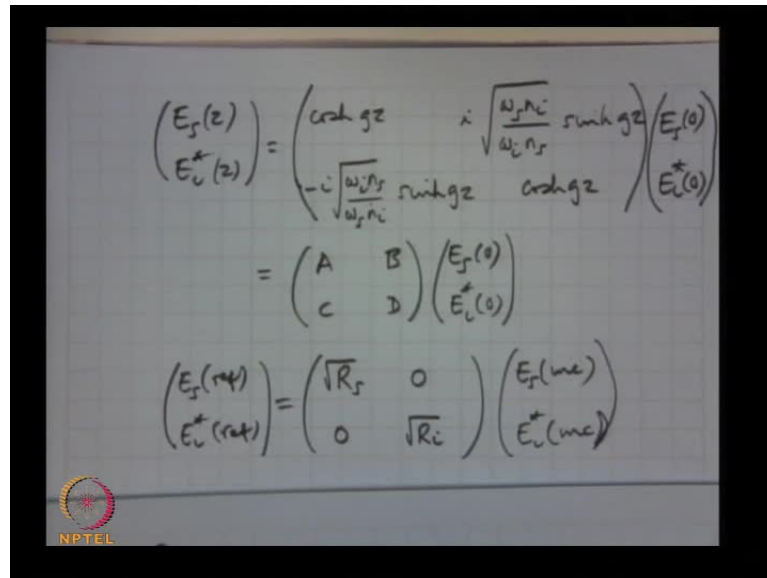 (E_s(z) E_i*(z)) = (cosh gz   i √(ω_s n_i / ω_i n_s) sinh gz   -i √(ω_i n_s / ω_s n_i) sinh gz   cosh gz) (E_s(0) E_i*(0))
= (A B C D) (E_s(0) E_i*(0))
(E_s(ref) E_i*(ref)) = (√R_s 0 0 √R_i) (E_s(inc) E_i*(inc))
NPTEL